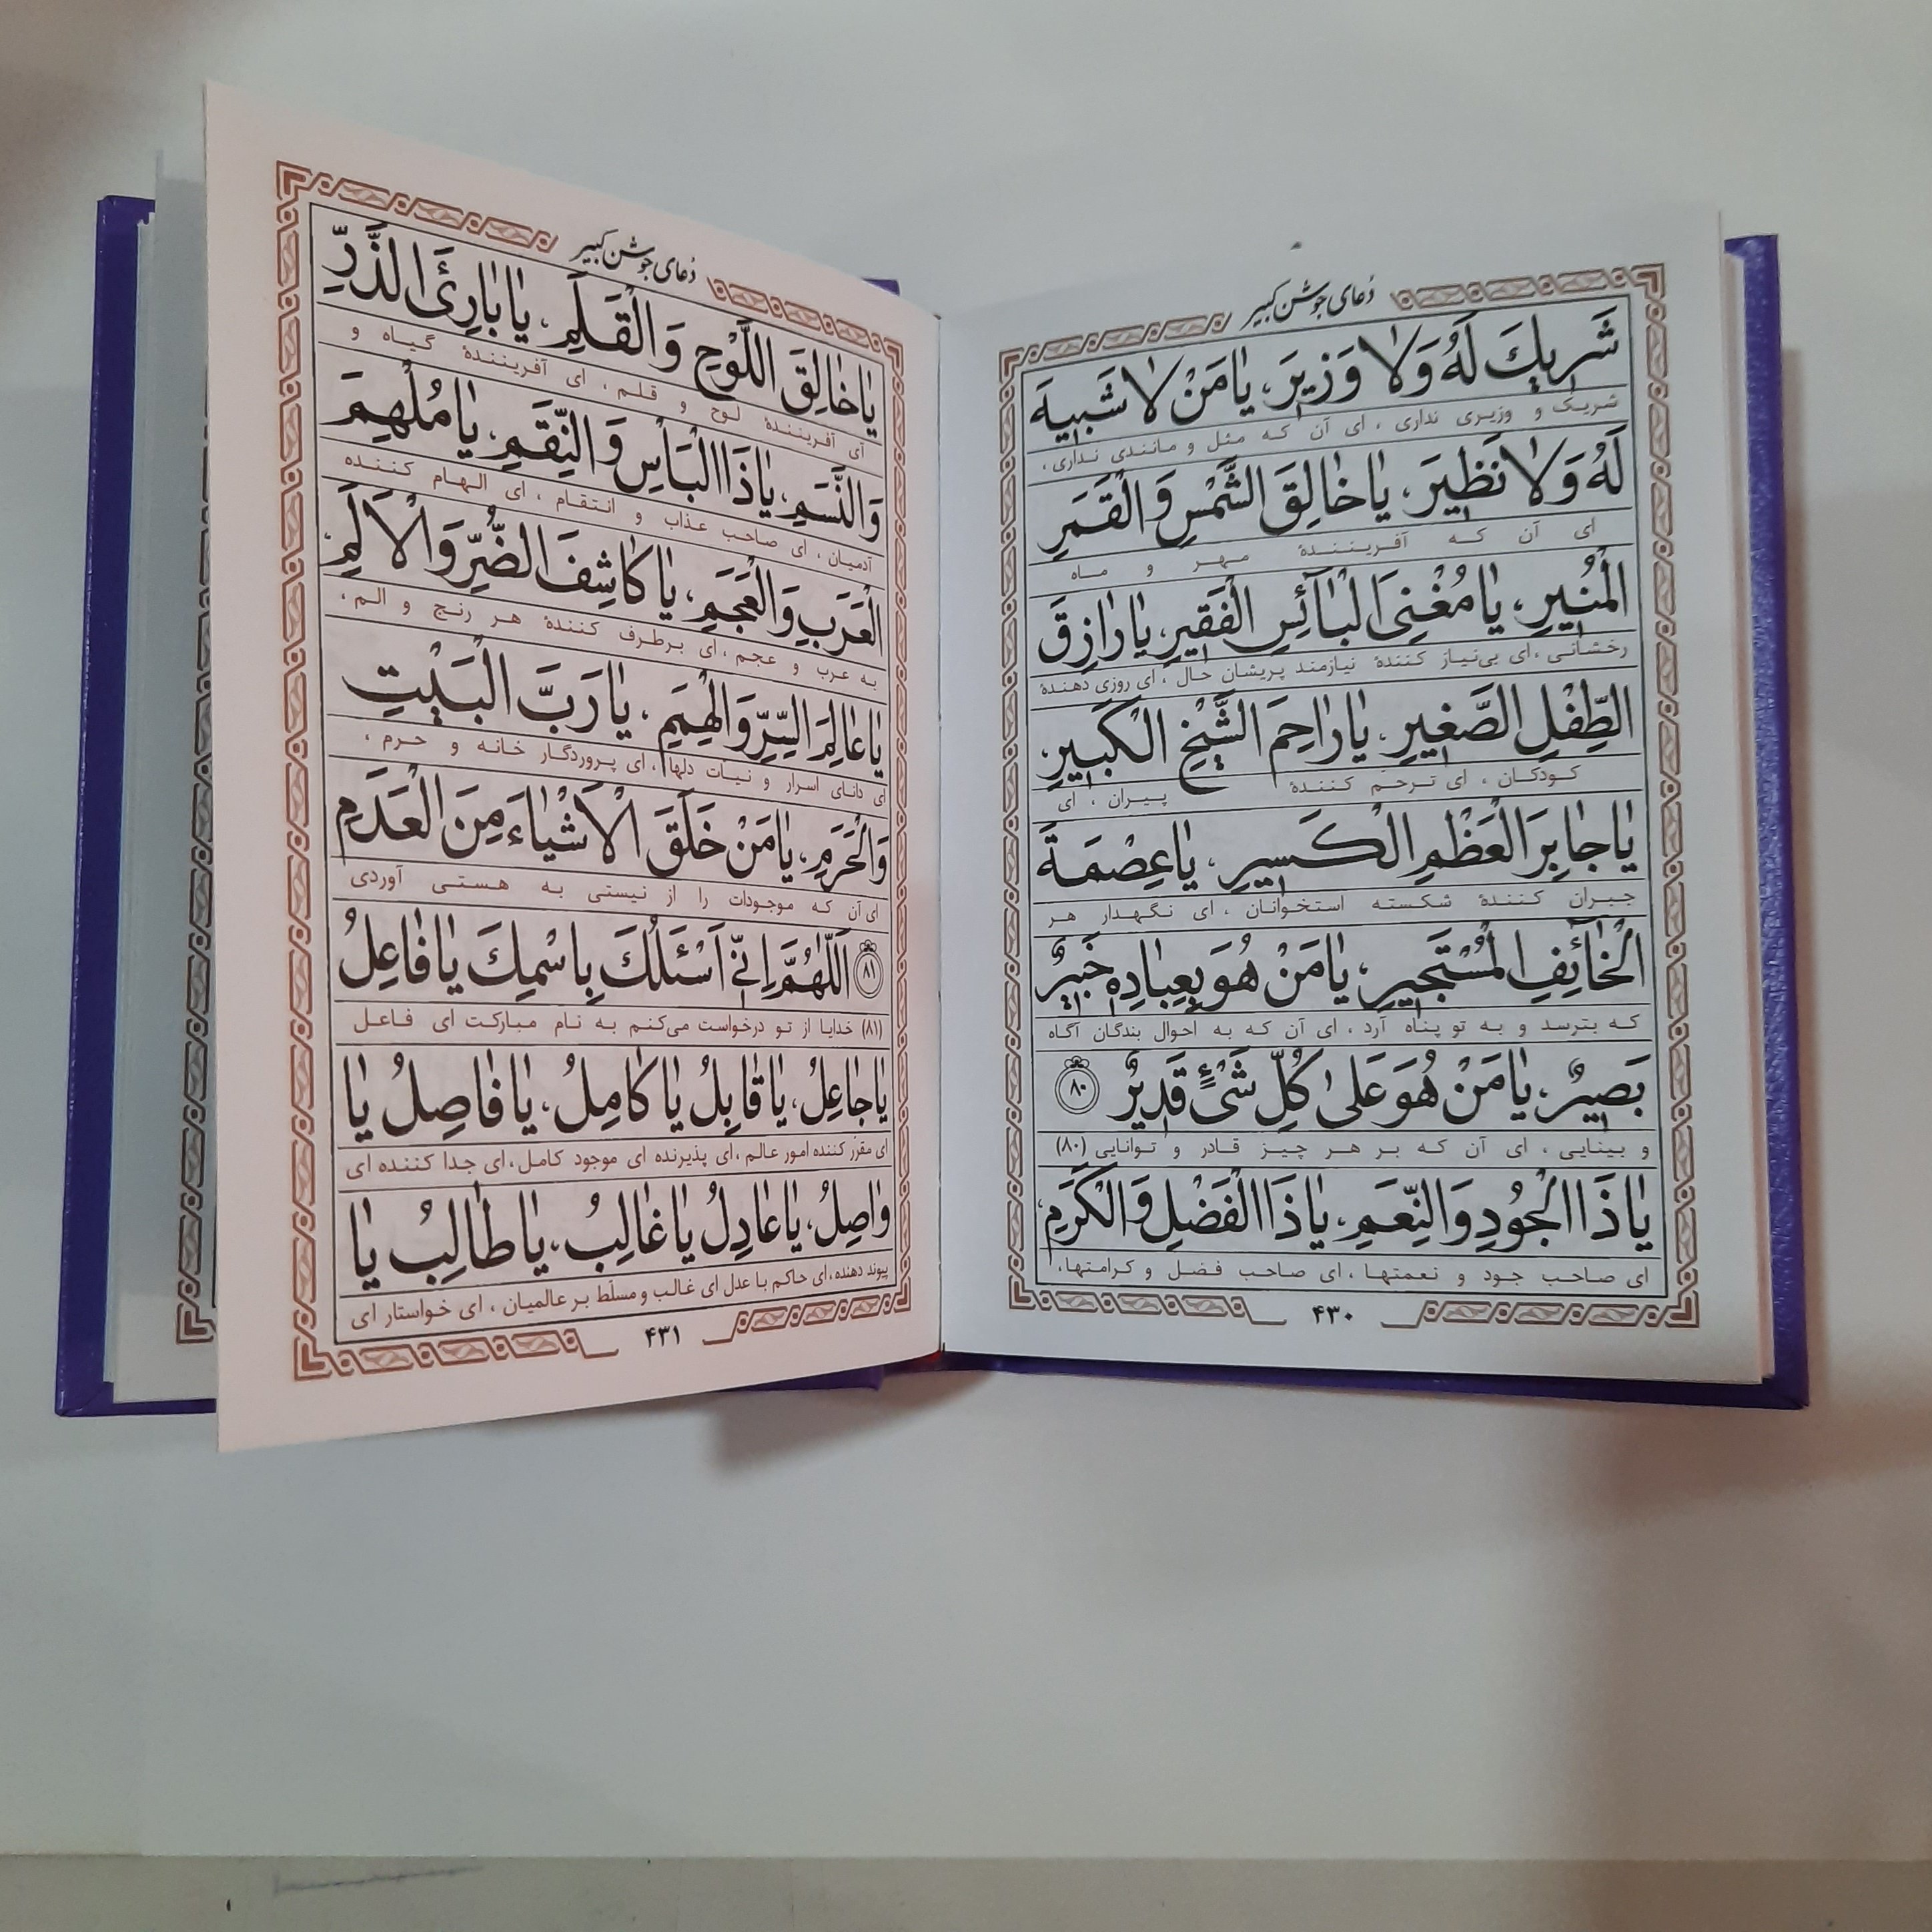 دعای جوشن کبیر
شَرِيكَ لَهُ وَلٰا وَزِيرَ، يٰا مَنْ لٰا شَبِيهَ
شریک و وزیری نداری ، ای آن که مثل و مانندی نداری،
لَهُ وَلٰا نَظِيرَ، يٰا خٰالِقَ الشَّمْسِ وَالْقَمَرِ
ای آن که آفرینندهٔ مهر و ماه
الْمُنِيرِ، يٰا مُغْنِىَ الْبٰآئِسِ الْفَقِيرِ، يٰا رٰازِقَ
رخشانی ، ای بی‌نیاز کنندهٔ نیازمند پریشان حال ، ای روزی دهندهٔ
الطِّفْلِ الصَّغِيرِ، يٰا رٰاحِمَ الشَّيْخِ الْكَبِيرِ،
کودکان ، ای ترحّم کنندهٔ پیران ، ای
يٰا جٰابِرَ الْعَظْمِ الْكَسِيرِ، يٰا عِصْمَةَ
جبران کنندهٔ شکسته استخوانان ، ای نگهدار هر
الْخٰآئِفِ الْمُسْتَجِيرِ، يٰا مَنْ هُوَ بِعِبٰادِهِ خَبِيرٌ
که بترسد و به تو پناه آرد ، ای آن که به احوال بندگان آگاه
بَصِيرٌ، يٰا مَنْ هُوَ عَلىٰ كُلِّ شَىْءٍ قَدِيرٌ ۸۰
و بینایی ، ای آن که بر هر چیز قادر و توانایی (۸۰)
يٰا ذَا الْجُودِ وَالنِّعَمِ، يٰا ذَا الْفَضْلِ وَالْكَرَمِ،
ای صاحب جود و نعمتها ، ای صاحب فضل و کرامتها،
۴۳۰
دعای جوشن کبیر
يٰا خٰالِقَ اللَّوْحِ وَالْقَلَمِ، يٰا بٰارِئَ الذَّرِّ
ای آفرینندهٔ لوح و قلم ، ای آفرینندهٔ گیاه و
وَالنَّسَمِ، يٰا ذَا الْبَأْسِ وَالنِّقَمِ، يٰا مُلْهِمَ
آدمیان ، ای صاحب عذاب و انتقام ، ای الهام کننده
الْعَرَبِ وَالْعَجَمِ، يٰا كٰاشِفَ الضُّرِّ وَالْاَلَمِ،
به عرب و عجم ، ای برطرف کنندهٔ هر رنج و الم ،
يٰا عٰالِمَ السِّرِّ وَالْهِمَمِ، يٰا رَبَّ الْبَيْتِ
ای دانای اسرار و نیّات دلها ، ای پروردگار خانه و حرم ،
وَالْحَرَمِ، يٰا مَنْ خَلَقَ الْاَشْيٰاءَ مِنَ الْعَدَمِ
ای آن که موجودات را از نیستی به هستی آوردی
۸۱ اَللّٰهُمَّ اِنّى اَسْئَلُكَ بِاسْمِكَ يٰا فٰاعِلُ
(۸۱) خدایا از تو درخواست می‌کنم به نام مبارکت ای فاعل
يٰا جٰاعِلُ، يٰا قٰابِلُ يٰا كٰامِلُ، يٰا فٰاصِلُ يٰا
ای مقرّر کننده امور عالم ، ای پذیرنده ای موجود کامل، ای جدا کننده ای
وٰاصِلُ، يٰا عٰادِلُ يٰا غٰالِبُ، يٰا طٰالِبُ يٰا
پیوند دهنده، ای حاکم با عدل ای غالب و مسلّط بر عالمیان ، ای خواستار ای
۴۳۱